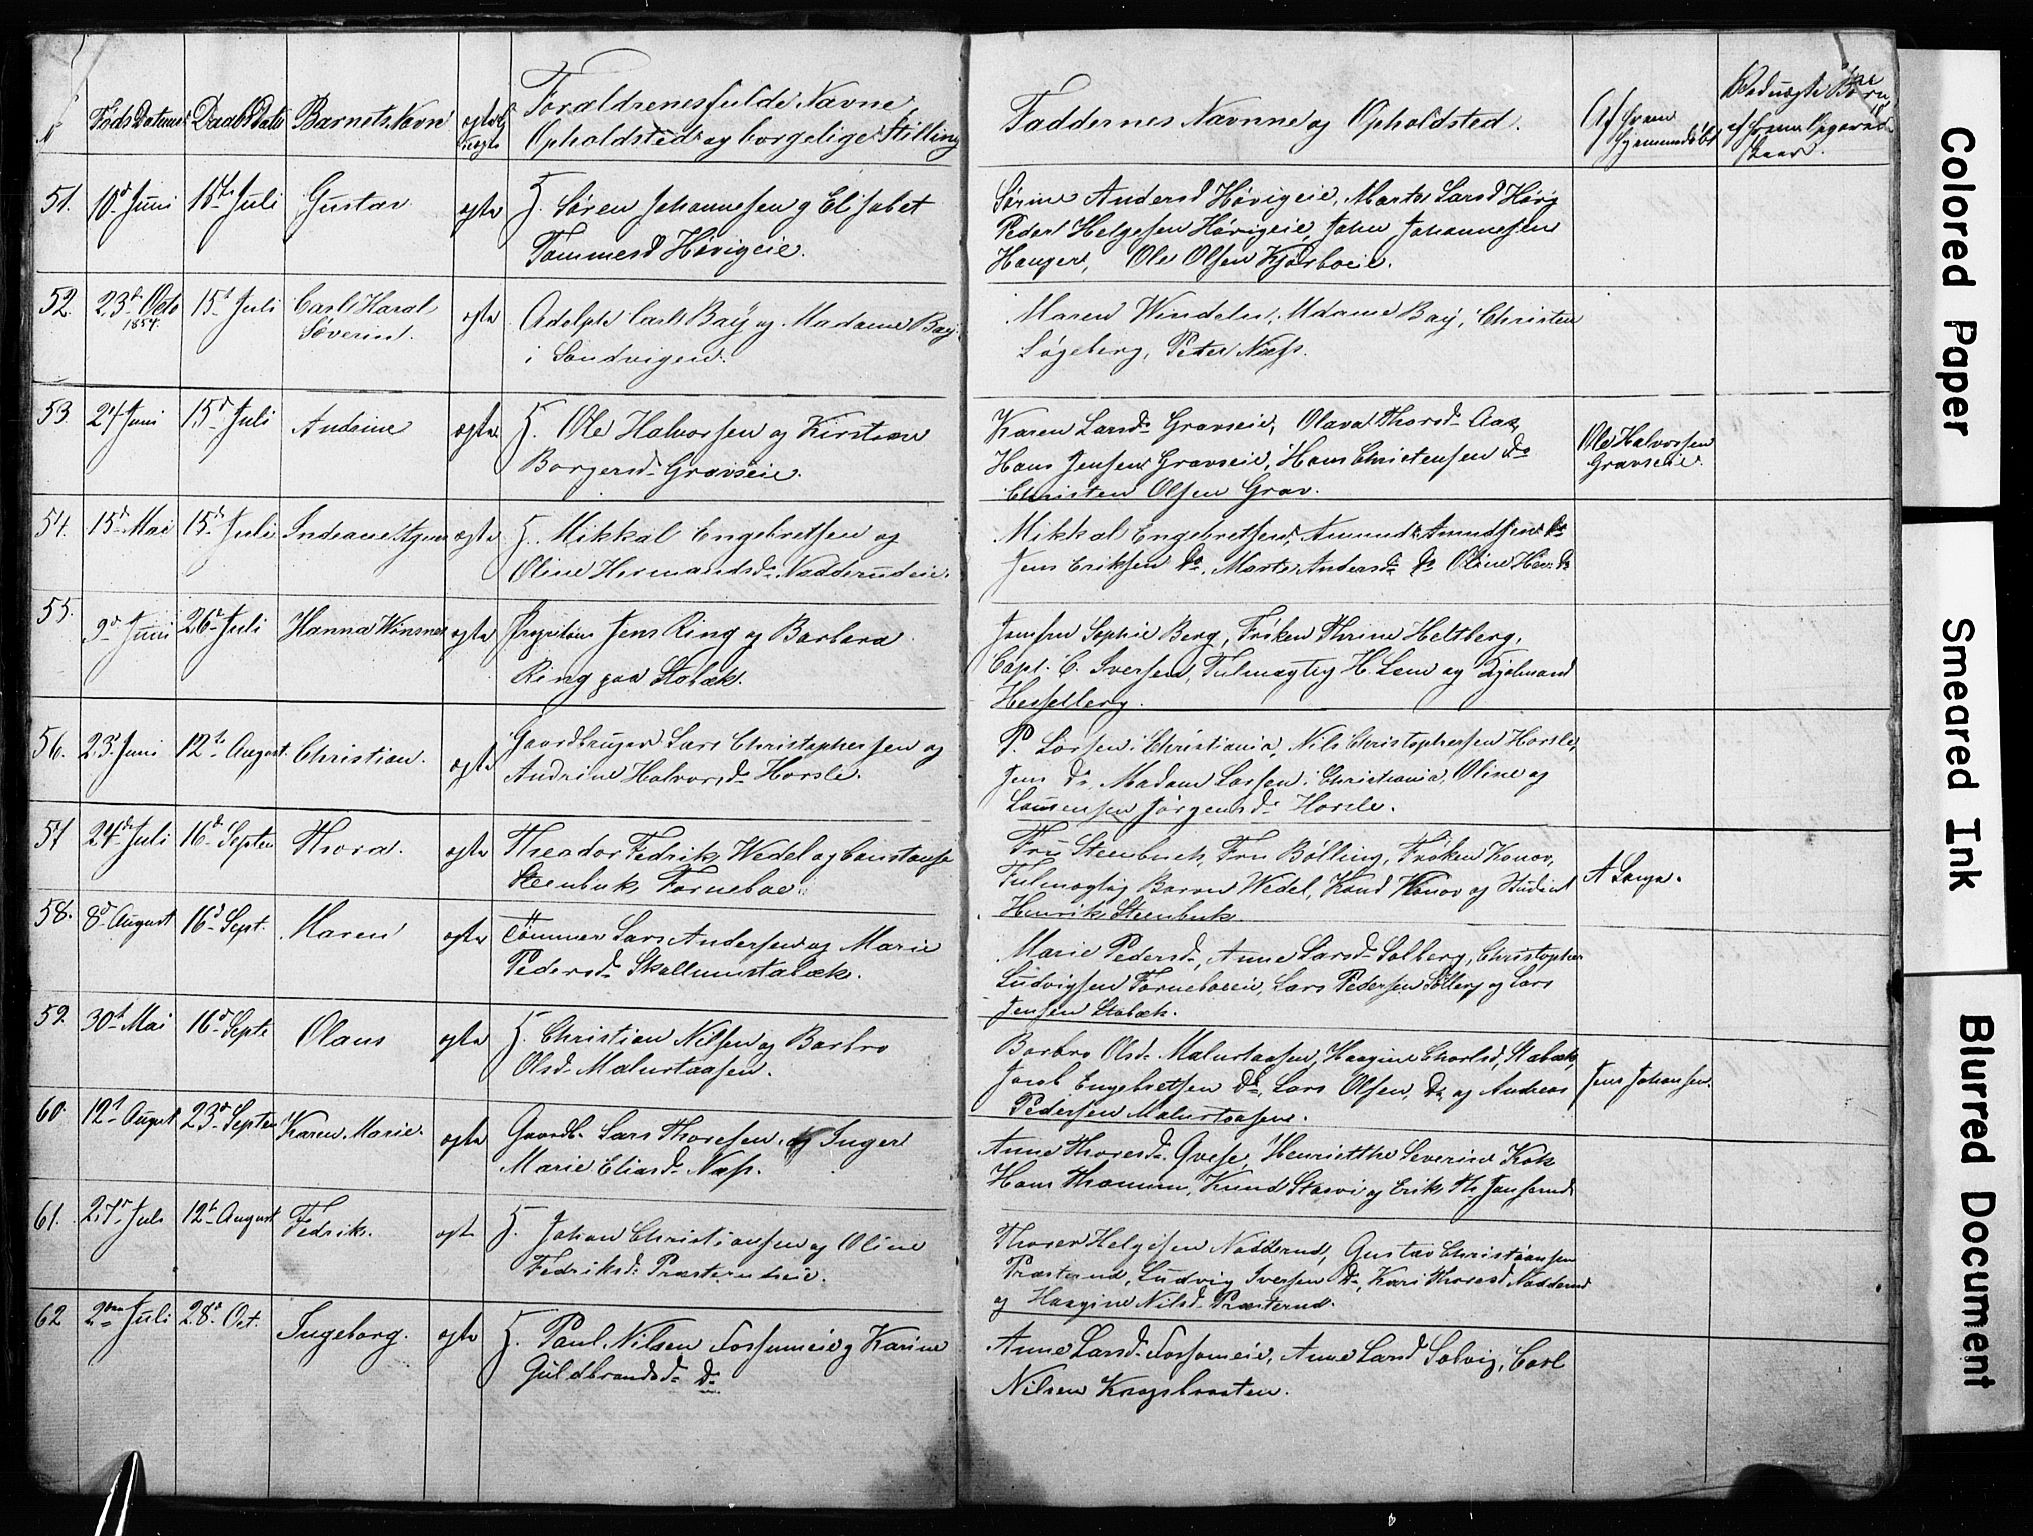 N Føds Datum Daabs Dato Barnets Navn ægte el. uægte Foraldrenes fulde Navne
Opholdsted og borgelige Stilling
Faddernes Navnne og Opholdsted.
Af hvem hjemmedøbt
Ved uægte Børn, af hvem
51. 10d Juni 15de Juli Gustav ægte H. Søren Johannesen og Elisabet
Tommesd Høvigeie.
Sørine Andersd Høvigeie, Marte Larsd Høvig
Peder Helgesen Høvigeie, John Johannesen
Hauger, Ole Olsen Kjørboeie.
52. 23d Octo 1854. 15d Juli Carl Haral
Severin. ægte Adolph Carl Bay og Madame Bay
i Sandvigen.
Maren Vindelu, Mdame Bay, Christen
Løgeberg, Peter Næss.
53. 24 Juni 15d Juli Andrine ægte H. Ole Halvorsen og Kirstene
Borgersd. Gravseie.
Karen Larsd. Gravseie, Olava Thorsd. Aas,
Hans Jensen Gravseie, Hans Christensen do
Christen Olsen Grav.
Ole Halvorsen
Gravseie.
54. 15d Mai 15d Juli Indeane Agnes ægte H. Mikkal Engebretsen og
Oline Hermandsd. Nadderudeie.
Mikkal Engebretsen, Amund Amundsen do
Jens Eriksen do, Marte Andersd. do Oline Her. d.
55. 9d Juni 26d Juli Hanna Wensnes ægte Proprietær Jens Ring og Barbara
Ring paa Stabæk.
Jomfru Sophie Berg, Frøken Thrine Heltberg,
Capt. C. Iversen, Fulmægtig H. Lem og Kjøbmand
Hesselberg.
56. 23d Juni 12te August. Christian. ægte Gaardbruger Lars Christophersen og
Andrine Halvorsd. Horsle.
P. Larsen i Christiania, Nils Christophersen Horsle,
Jens do, Madam Larsen i Christiania, Oline og
Jørgensd. Horsle.
57 24de Juli 16d Septem Thora. ægte Theodor Fedrik Wedel og Constanse
Steenbuk Forneboe.
Fru Steenbuck, Fru Bølling, Frøken Konov,
Fulmægtig Baron Wedel, Kand Konov og Student
Henrik Steenbuk
A Lange.
58. 8d August 16d Sept. Maren ægte Tømmer Lars Andersen og Marie
Pedersd. Skallumstabæk.
Marie Pedersd., Anne Larsd. Solberg, Christopher
Ludvigsen Forneboeie, Lars Pedersen Solberg og Lars
Jensen Stabæk.
59 30d Mai 16d Septe Olaus ægte H. Christian Nilsen og Barbro
Olsd. Malurtaasen.
Barbro Olsd. Malurtaasen, Haagine Charlsd, Stabæk,
Jacob Engebretsen do, Lars Olsen, do og Andreas
Pedersen Malurtaasen.
Jens Johansen.
60. 12d August 23d Septem Karen Marie. ægte Gaardb. Lars Thoresen og Inger
Marie Eliasd. Næss.
Anne Thoresd. Gvese, Henriethe Severine Kok
Hans Thommesen, Knud Staavi og Erik Th. Jonsrud.
61. 27d Juli 12d August Fedrik. ægte H. Johan Christiansen og Oline
Fedriksd. Præsterudeie.
Thorer Helgesen Nadderud, Gustav Christiansen
Præsterud, Ludvig Iversen do, Kari Thoresd Nadderud
og Haagine Nilsd. Præsterud.
62 2den Juli 28d Oct. Ingeborg. ægte H. Paul Nilsen Fossumeie og Karine
Guldbrandsd. do
Anne Larsd. Fossumeie, Anne Larsd Solvig, Carl
Nilsen Kragsbraaten.
Colored Paper
Smeared Ink
Blurred Document